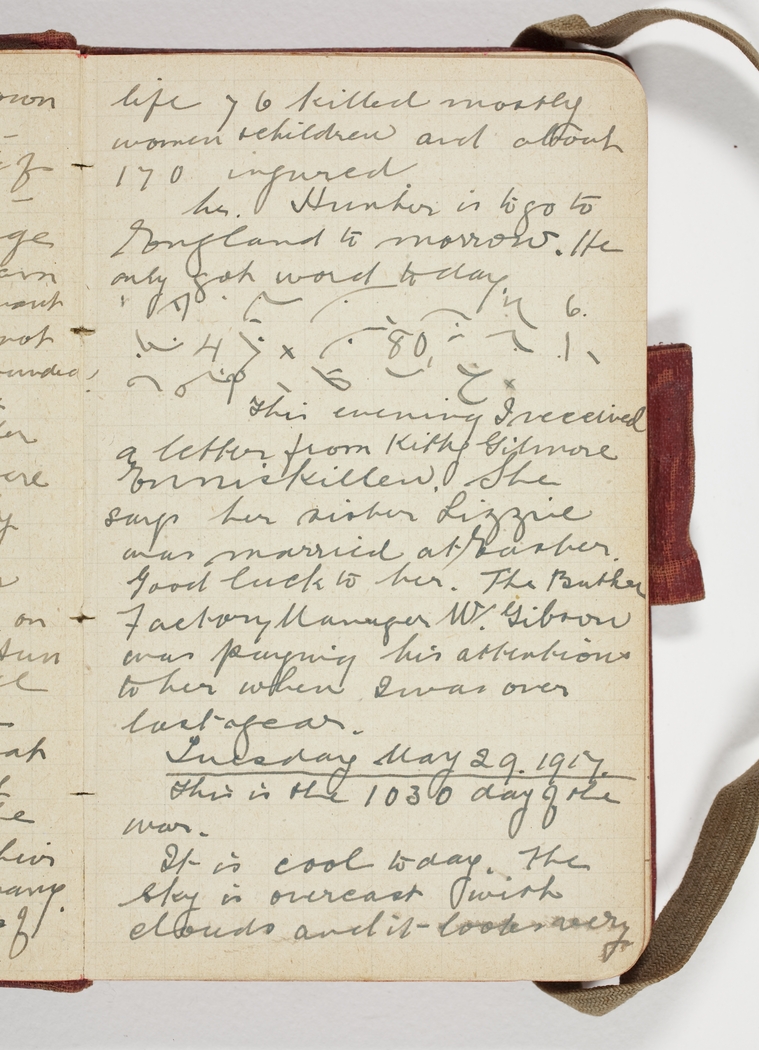 own
of
ge
not
ere
on
life 76 killed mostly
women & children and about
170 ingured.
Hunter is to go to
England to morrow. He
only got word today
6.
47 x 80, 1
This evening I received
a letter from Kitty Gilmore
Enniskillen. She
says her sister Lizzie
was married at Easter.
Good luck to her. The Butter
Factory Manager W. Gibson
was paying his attentions
to her when I was over
last year.
Tuesday May 29. 1917.
This is the 1030 day of the
war.
It is cool today. The
sky is overcast with
clouds and it looks very